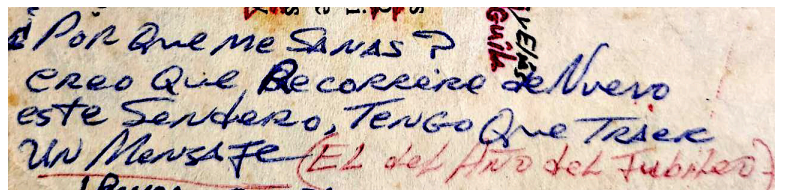 ¿ POR QUE ME SANAS ?
CREO QUE RECORRERE de Nuevo
este SENDERO, TENGO QUE TRAER
UN MENSAJE (EL del AÑO del JUBILEO)